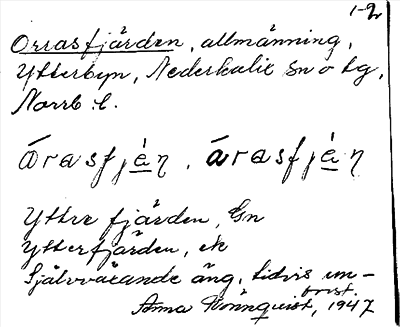 1-2
Orrasfjärden, allmänning,
Ytterbyn, Nederkalix sn o tg,
Norrb. l.
årasfjén, årasfjén
Yttre fjärden, Gn
Ytterfjärden, ek
Självväxande äng, tidvis un-
Anna Rönnquist, 1947